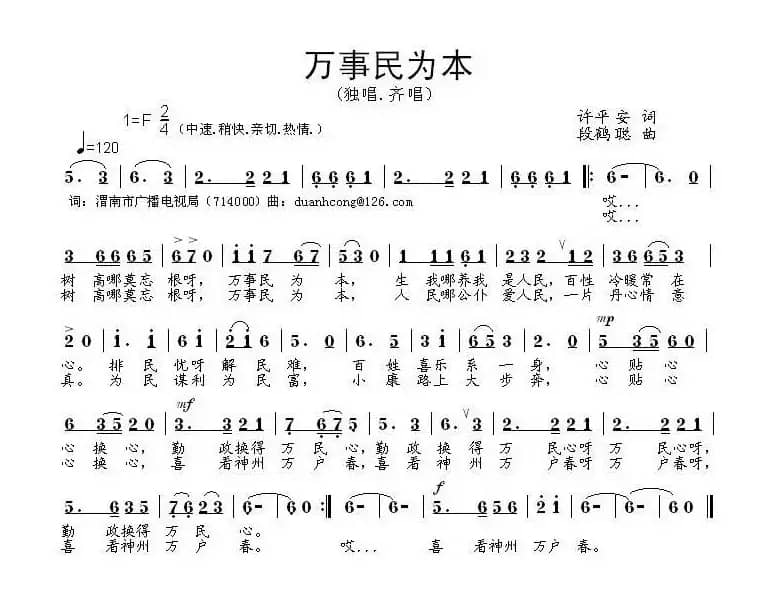 万事民为本
(独唱.齐唱)
1=F 2/4 (中速.稍快.亲切.热情.)
♩=120
许平安 词
段鹤聪 曲
5. 3 | 6. 3 | 2. 2 2 1 | 6 6 6 6 | 2. 2 2 1 | 6 6 6 6 1 |: 6 - | 6. 0 |
词：渭南市广播电视局（714000）曲：duanhcong@126.com
哎...
哎...
3 6 6 6 5 | 6 7 0 | i i 7 6 7 | 5 3 0 | 1 1 1 6 1 | 2 3 2 1 2 | 3 6 6 5 3 |
树 高哪莫忘 根呀， 万事民 为 本， 生 我哪养我 是人民，百性 冷暖常 在
树 高哪莫忘 根呀， 万事民 为 本， 人 民哪公仆 爱人民，一片 丹心情 意
2 0 | i. i | 6 i | 2 i 6 | 5. | 6. 5 | 3 i | 6 5 3 | 2. 0 | mp 5 3 5 | 6 0 |
心。 排 民 忧呀 解 民 难， 百 姓 喜乐 系 一 身， 心 贴 心
真。 为 民 谋利 为 民 富， 小 康 路上 大 步 奔， 心 贴 心
6 3 5 | 2 0 | mf 3. 3 2 1 | 7 6 7 | 5. 5 | 6. 3 | 2. 2 2 1 | 2. 2 2 1 |
心 换 心， 勤 政换得 万 民 心，勤 政 换 得 万 民心呀 万 民心呀，
心 换 心， 喜 看神州 万 户 春，喜 看 神 州 万 户春呀 万 户春呀，
5. 6 3 5 | 7 6 2 3 | 6 - | 6 0 :| 6 - | 6 - | f 5. 6 5 6 | 2 i | 6 - | 6 0 ‖
勤 政换得 万 民 心。
喜 看神州 万 户 春。 哎... 喜 看神州 万户 春。